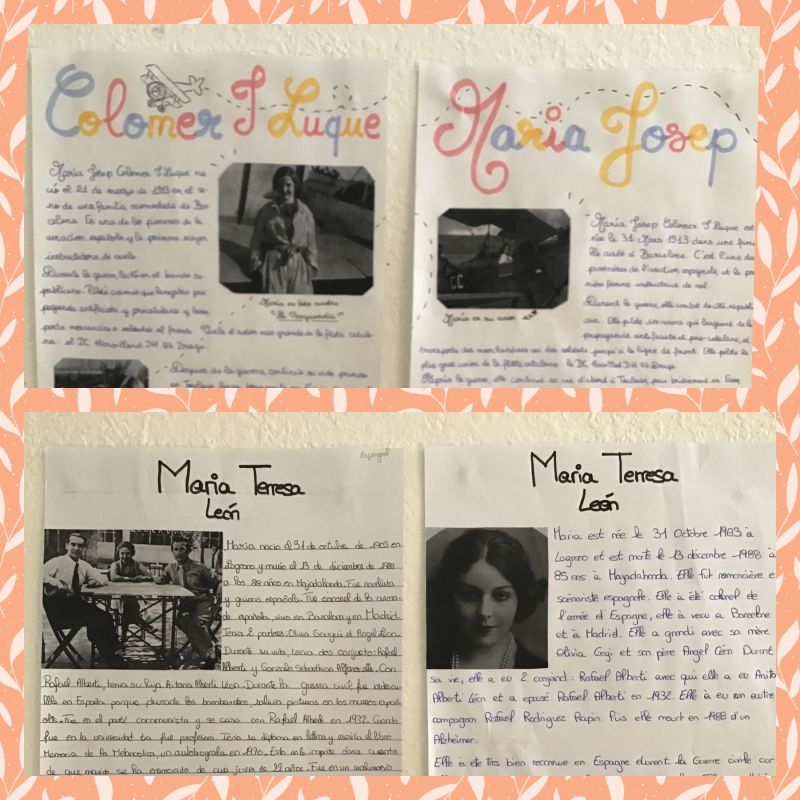 Colomer I Luque
Maria Josep Colomer I Luque na-
ció el 31 de marzo de 1913 en el se-
no de una familia acomodada de Bar-
celona. Es una de las pioneras de la
aviación española y la primera mujer
instructora de vuelo.
Durante la guerra, luchó en el bando re-
publicano. Pilotó aviones que
propaganda antifascista y procatalana y trans-
porta mercancías o soldados al frente. Vuela el avión más grande de la flota catala-
na: el DC Havilland DH 84 Dragó.
María en foto
"La Vanguardia"
Después de la guerra, continúa su vida primero
en
Maria Josep
CC
María en su avión
Maria Josep Colomer I Luque est
née le 31 Mars 1913 dans une fami
lle aisée à Barcelone. C'est l'une des
pionnières de l'aviation espagnole, et la pre
mière femme instructrice de vol.
Durant la guerre, elle combat du côté républi
cain. Elle pilote des avions qui larguent de la
propagande antifasciste et pro-catalane, et
transporte des marchandises ou des soldats jusqu'à la ligne de front. Elle pilote le
plus gros avion de la flotte catalane: le DC Havilland DH 84 Dragó.
Après la guerre, elle continue sa vie d'abord à Toulouse, puis
Espagnol
Maria Terresa
León
Maria nacio el 31 de octubre de 1903 en
Logrono y murio el 13 de diciembre de 1988
a los 85 años en Majadahonda. Fue novelista
y guiona española. Fue coronel de la arma-
da española, vivo en Barcelona y en Madrid.
Tenia 2 padres: Olivia Goyri et Angel León.
Durante su vida, tenia dos conjueto: Rafael
Alberti y Gonzalo Sebasthian Alfaro. Con
Rafael Alberti, tenia su hija Aitana Alberti Léon. Durante la guerra civil fue
en España porque durante los bombardeos, salvia pinturas en los museos españ-
oles. Fue en el parti communista y se casa con Rafael Alberti en 1932. Cuando
fue en la universitad tia fue profesor. Tenia su diploma en lettras y escribia el libro
Memoria de la Melancolica, un autobiografia en 1970.
de que marido se ha enamorado de una joven de 22 años. Fue en un matrimonio
Maria Terresa
León
Maria est née le 31 Octobre 1903 à
Logrono et est morte le 13 décembre 1988 à
85 ans à Majadahonda. Elle fut romancière e
scénariste espagnole. Elle à été colonel de
l'armée d'Espagne, elle à vecu a Barcelone
et à Madrid. Elle a grandi avec sa mère
Olivia Goyi et son père Angel Léon Durant
sa vie, elle a eu 2 conjoint: Rafael Alberti avec qui elle a eu Anita
Alberti Léon et a épousé Rafael Alberti en 1932. Elle à eu un autre
compagnon Rafael Rodriguez Rapin. Puis elle meurt en 1988 d'un
Alzheimer.
Elle à ete tres bien reconnue en Espagne durant la Guerre civile car